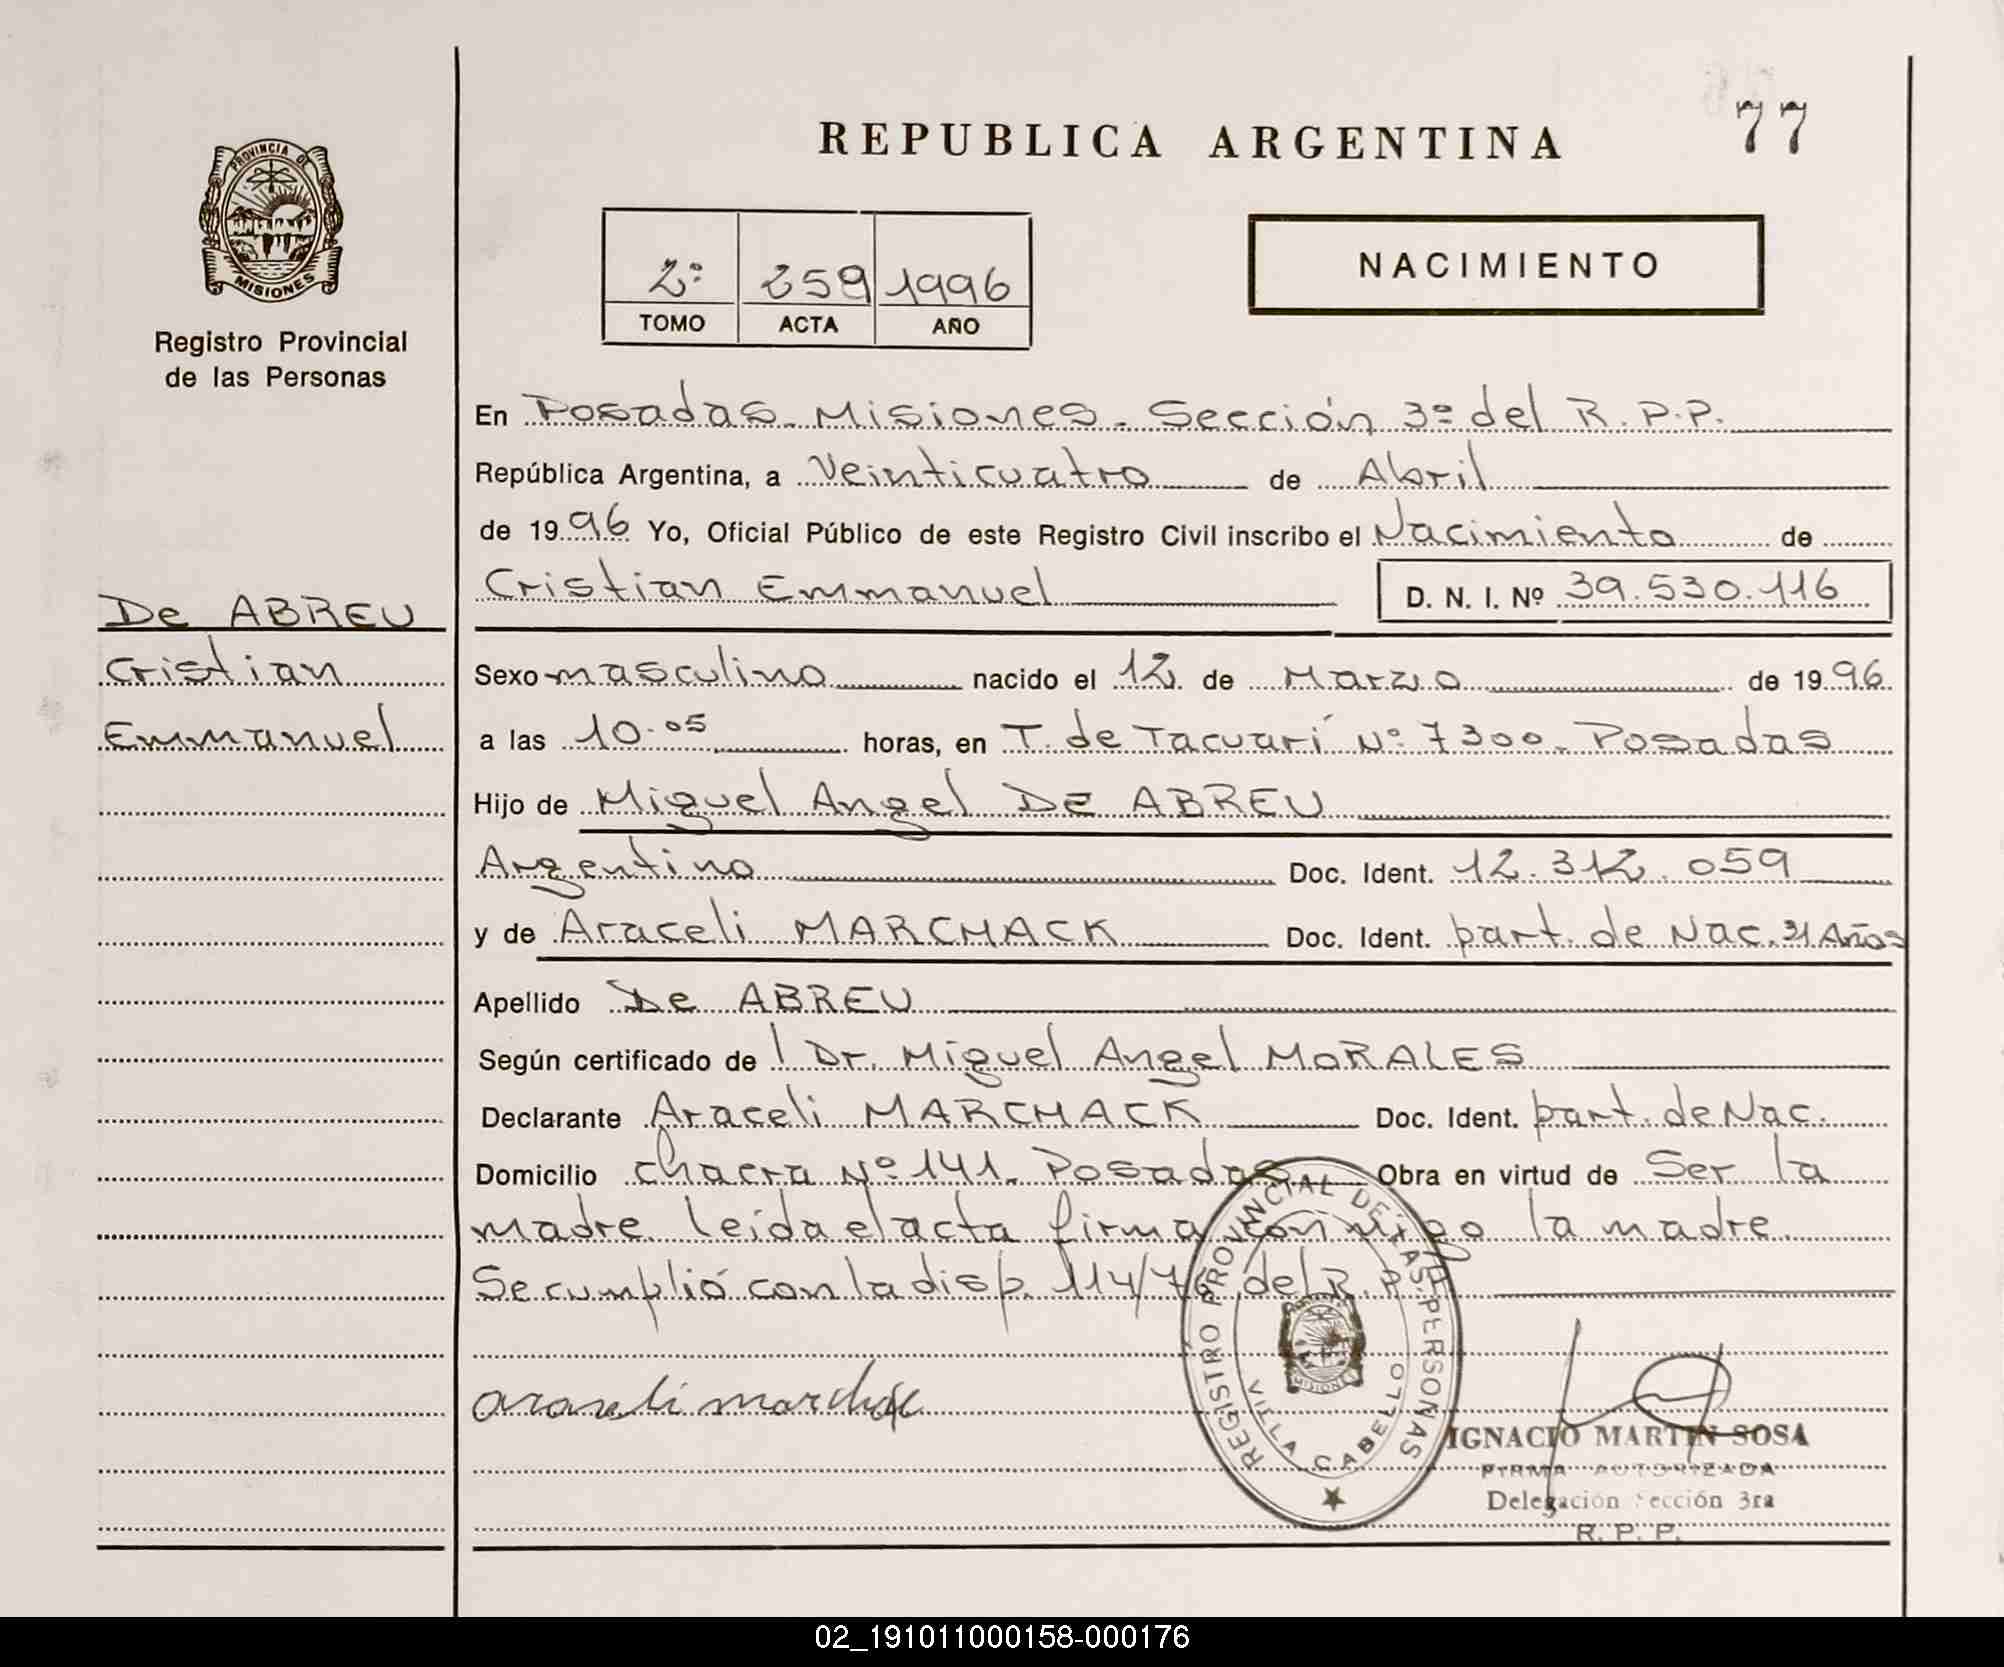 REPUBLICA ARGENTINA
77
PROVINCIA DE
MISIONES
Registro Provincial
de las Personas
2º 259 1996
TOMO ACTA AÑO
NACIMIENTO
En Posadas. Misiones. Sección 3º del R.P.P.
República Argentina, a Veinticuatro de Abril
de 1996 Yo, Oficial Público de este Registro Civil inscribo el Nacimiento de
Cristian Emmanuel D. N. I. Nº 39.530.116
De ABREU
Cristian
Emmanuel
Sexo masculino nacido el 12 de Marzo de 1996
a las 10.05 horas, en T. de Tacuarí Nº 7300. Posadas
Hijo de Miguel Angel DE ABREU
Argentino Doc. Ident. 12.312.059
y de Araceli MARCHACK Doc. Ident. part. de Nac. 31 Años
Apellido De ABREU
Según certificado de Dr. Miguel Angel MORALES
Declarante Araceli MARCHACK Doc. Ident. part. de Nac.
Domicilio chacra Nº 141. Posadas Obra en virtud de Ser la
madre. leída el acta firma conmigo la madre.
Se cumplió con la disp. 114/76 del R.P.P.
araceli marchak
REGISTRO PROVINCIAL DE LAS PERSONAS
VILLA CABELLO
MISIONES
IGNACIO MARTIN SOSA
FIRMA AUTORIZADA
Delegación Sección 3ra
R. P. P.
02_191011000158-000176